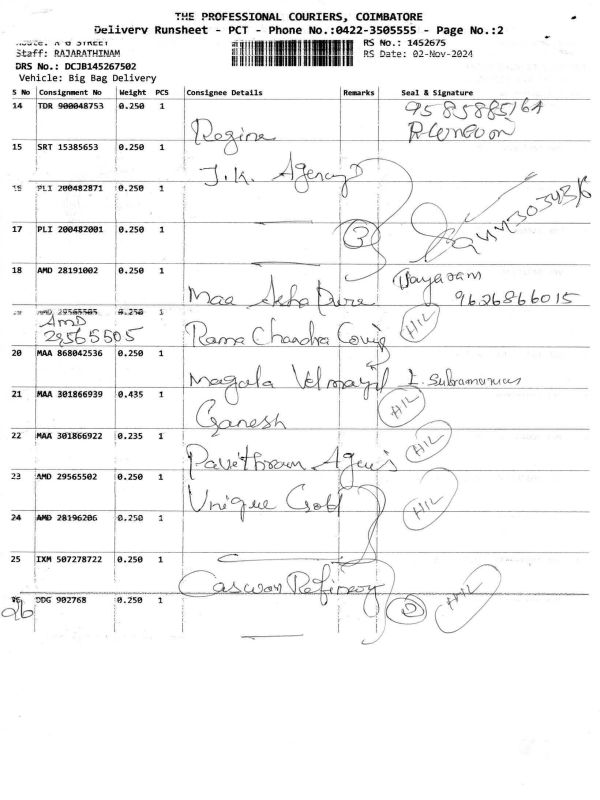 THE PROFESSIONAL COURIERS, COIMBATORE
Delivery Runsheet - PCT - Phone No.:0422-3505555 - Page No.:2
STREET
RS No.: 1452675
Staff: RAJARATHINAM
RS Date: 02-Nov-2024
DRS No.: DCJB145267502
Vehicle: Big Bag Delivery
S No Consignment No Weight PCS Consignee Details Remarks Seal & Signature
14 TDR 900048753 0.250 1 Regina
15 SRT 15385653 0.250 1 J.K. Agency
16 PLI 200482871 0.250 1
17 PLI 200482001 0.250 1 3
18 AMD 28191002 0.250 1 Maa 9626866015
AMD 29565505 0.250 1 Rama Chandra HIL
AMD
29565505
20 MAA 868042536 0.250 1 L. Subramanian
21 MAA 301866939 0.435 1 Ganesh HIL
22 MAA 301866922 0.235 1 HIL
23 AMD 29565502 0.250 1 Unique Gold HIL
24 AMD 28196206 0.250 1
25 IXM 507278722 0.250 1 Refinery
26 DDG 902768 0.250 1 2 HIL
26